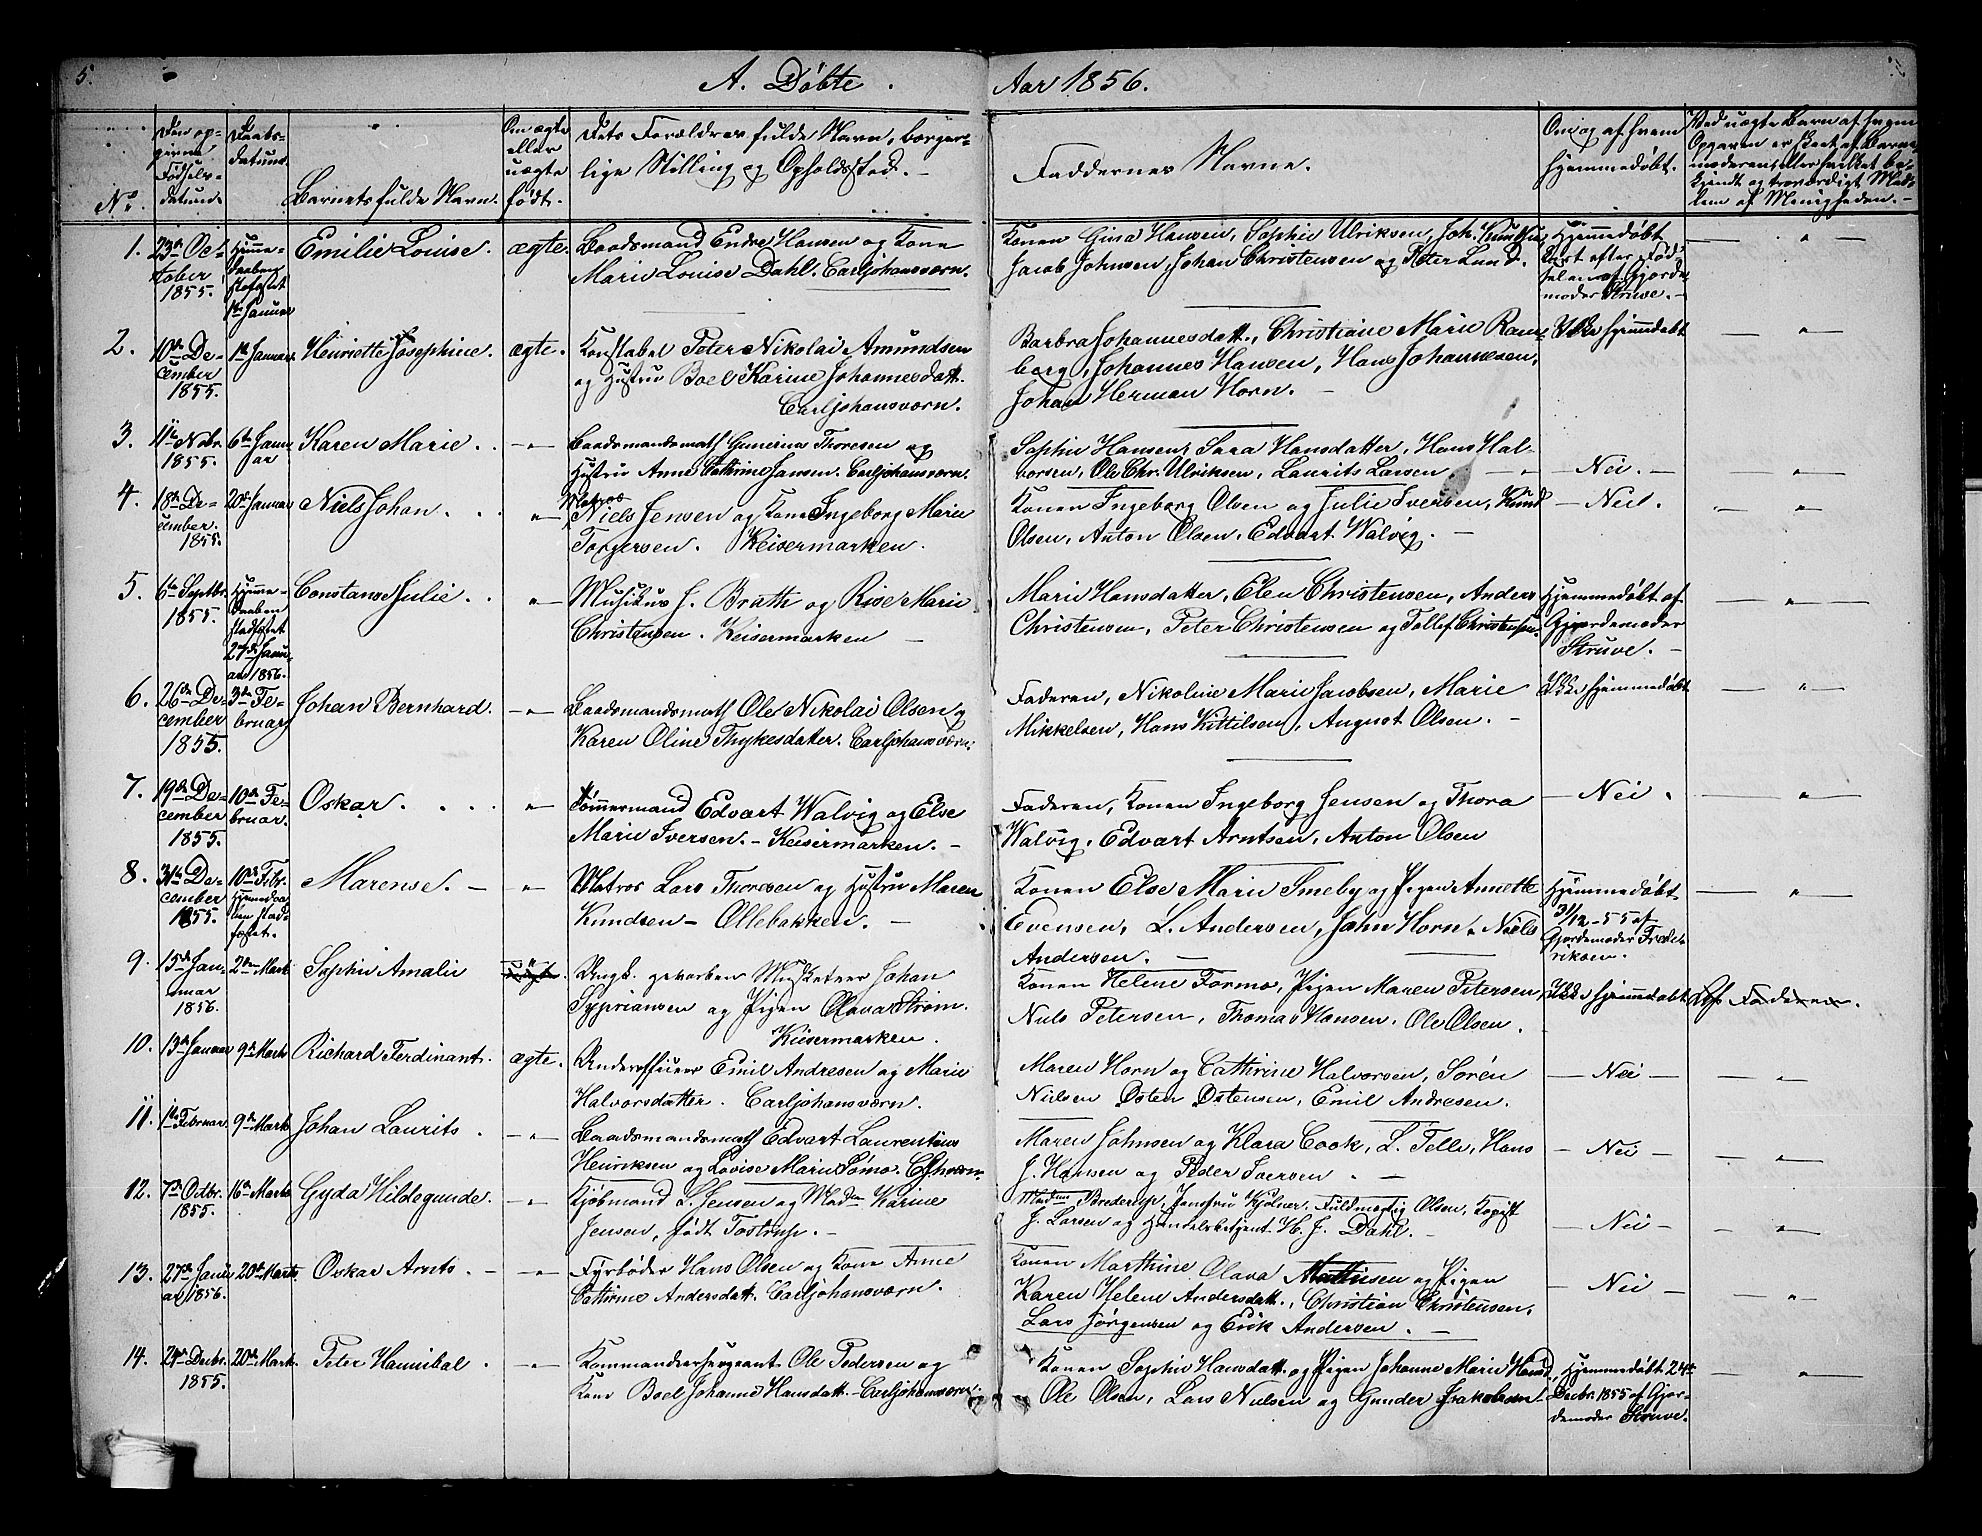 5.
A. Døbte.
Aar 1856.
No.
Den op-
givne
Fødsels-
datum.
Daabs-
datum.
Barnets fulde Navn.
Om ægte
eller
uægte
født.
Dets Forældres fulde Navn, borger-
lige Stilling og Opholdssted.
Faddernes Navne.
Om og af hvem
hjemmedøbt.
Ved uægte Barn af hvem
Opgaven er skeet af Barne-
moderen eller hvilket be-
kjendt og troværdigt Med-
lem af Menigheden.
1.
23de Oc-
tober
1855.
Hjemme-
daaben
stadfæstet
1ste Januar
Emilie Louise.
ægte.
Baadsmand Endre Hansen og Kone
Marie Louise Dahl. Carljohansværn.
Konen Gina Hansen, Sophie Ulriksen, Joh. Knudsen
Jacob Johnsen, Johan Christensen og Peter Lund.
Hjemmedøbt
kort efter Fød-
selen af Gjorde-
moder Struve.
"
2.
10de De-
cember
1855.
1ste Januar
Henriette Josephine.
ægte.
Konstabel Peter Nikolai Amundsen
og Hustru Boel Karine Johannesdatt.
Carljohansværn.
Barbra Johannesdatt., Christiane Marie Ram-
berg, Johannes Hansen, Hans Johannesen,
Johan Herman Horn.
Ikke hjemmedøbt
"
3.
11te Nobr.
1855.
6te Janu-
ar
Karen Marie.
"
Baadsmandsmath Gunerius Thoresen og
Hustru Anne Cathrine Jansen. Carljohansværn.
Sophie Hansen, Sara Hansdatter, Hans Hal-
vorsen, Ole Chr. Ulriksen, Laurits Larsen
Nei.
"
4.
18de De-
cember.
1855.
20de Januar
Niels Johan.
"
Matros
Niels Jensen og Kone Ingeborg Marie
Torgersen. Keisermarken.
Konen Ingeborg Olsen og Julie Iversen, Knud
Olsen, Anton Olsen, Edvart Walvig.
Nei.
"
5.
6te Septbr.
1855.
Hjemme-
daaben
stadfæstet
27de Janu-
ar 1856.
Constanse Julie.
"
Musikus J. Bruth og Rise Marie
Christensen. Keisermarken
Marie Hansdatter, Elen Christensen, Anders
Christensen, Peter Christensen og Tollef Christensen.
Hjemmedøbt af
Gjordemoder
Struve.
"
6.
26de De-
cember
1855.
3de Fe-
bruar
Johan Bernhard.
"
Baadsmandsmath Ole Nikolai Olsen og
Karen Oline Thykesdatter. Carljohansværn.
Faderen, Nikoline Marie Jacobsen, Marie
Mikkelsen, Hans Kittilsen, August Olsen.
Ikke hjemmedøbt
"
7.
19de De-
cember
1855.
10de Fe-
bruar.
Oskar.
"
Tømmermand Edvart Walvig og Else
Marie Iversen. Keisermarken.
Faderen, Konen Ingeborg Jensen og Thora
Walvig, Edvart Arntsen, Anton Olsen
Nei.
"
8.
31te De-
cember
1855.
10de Febr.
Hjemmedaa-
ben stad-
fæstet.
Marense.
"
Matros Lars Thoresen og Hustru Maren
Knudsen Ollebakken.
Konen Else Marie Smeby og Pigen Annette
Evensen, L. Andersen, John Horn, Niels
Andersen.
Hjemmedøbt
31/12-55 af
Gjordemoder Frede-
riksen.
"
9.
15de Jan-
uar
1856.
2den Marts
Sophie Amalie
"
Ungk. gevorben Musketeer Johan
Sypriansen og Pigen Olava Strøm.
Keisermarken.
Konen Helene Formo, Pigen Maren Petersen,
Niels Petersen, Thomas Hansen, Ole Olsen.
Ikke hjemmedøbt
Af Faderen.
10.
13de Januar
9de Marts
Richard Ferdinant.
ægte.
Underofficeer Emil Andresen og Marie
Halvorsdatter. Carljohansværn.
Maren Horn og Cathrine Halvorsen, Søren
Nielsen Østen Østensen, Emil Andresen.
Nei
"
11.
1ste Februar
9de Marts
Johan Laurits.
"
Baadsmandsmath Edvart Laurentius
Henriksen og Lovise Marie Sømo.
Maren Johnsen og Klara Cook, L. Telle, Hans
J. Hansen og Peder Iversen.
Nei
"
12.
7de Octbr.
1855.
16de Marts
Gyda Hildegunde.
"
Kjøbmand L. Jensen og Madm Karine
Jensen, født Tostrup.
Madme Bredersp, Jomfru Kjølner, Fuldmægtig Olsen, Kopist
J. Larsen og Handelsbetjent H. J. Dahl.
Nei
"
13.
27de Janu-
ar 1856.
20de Marts
Oskar Arnts.
"
Fyrbøder Hans Olsen og Kone Anne
Cathrine Andersdatt. Carljohansværn.
Konen Marthine Olava Mathisen og Pigen
Karen Helene Andersdatt., Christian Christensen,
Lars Jørgensen og Erik Andersen.
Nei
"
14.
24de Decbr.
1855.
20de Marts
Peter Hannibal.
"
Kommandeersergeant Ole Pedersen og
Kone Boel Johanne Hansdatt. Carljohansværn.
Konen Sophie Hansdatt. og Pigen Johanne Marie Hansd,
Ole Olsen, Lars Nielsen og Gunder Isaksen
Hjemmedøbt 24de
Decbr. 1855 af Gjor-
demoder Struve.
"